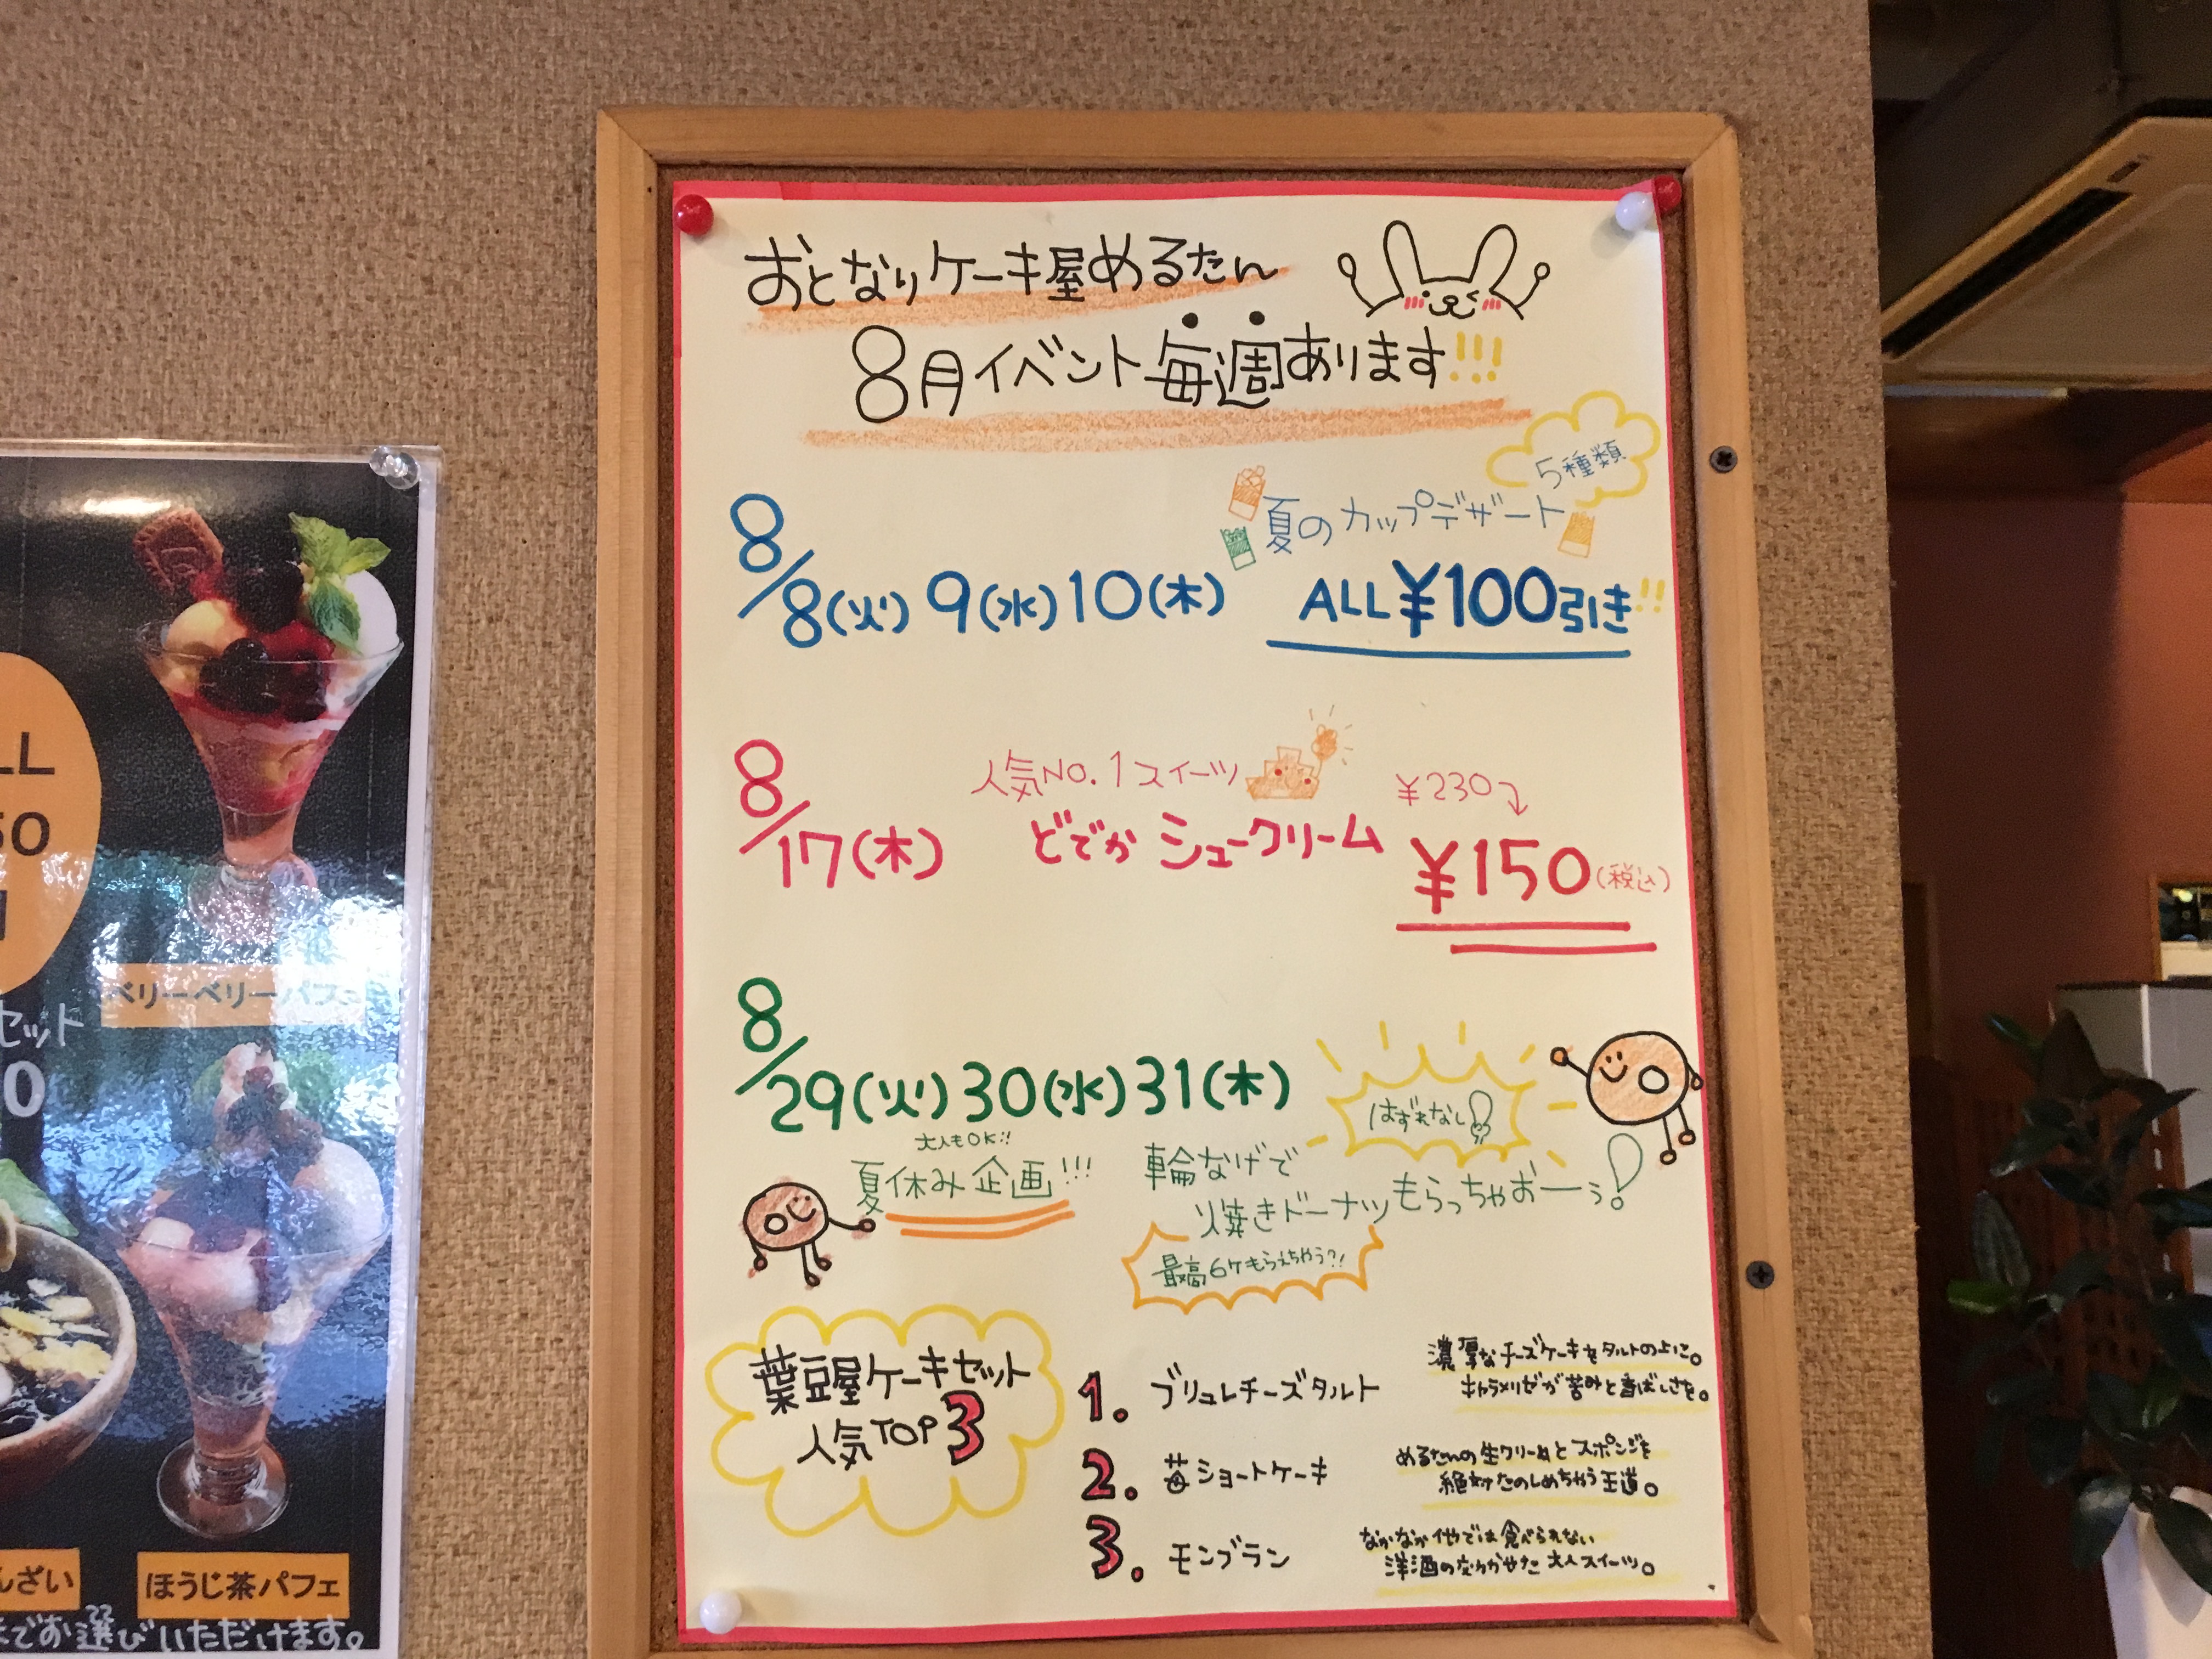 おとなりケーキ屋めるたん
8月イベント毎週あります!!!
5種類
夏のカップデザート
8/8(火) 9(水) 10(木)
ALL ¥100引き!!
人気No.1スイーツ
¥230
8/17(木)
どでか シュークリーム
¥150(税込)
8/29(火) 30(水) 31(木)
はずれなし!
大人もOK!!
夏休み企画!!!
輪なげで
焼きドーナツもらっちゃおーぅ!
最高6ケもらえちゃう?!
葉豆屋ケーキセット
人気TOP3
1. ブリュレチーズタルト
濃厚なチーズケーキをタルトの上に。
キャラメリゼが苦みと香ばしさを。
2. 苺ショートケーキ
めるたんの生クリームとスポンジを
絶対たのしめちゃう王道。
3. モンブラン
なかなか他では食べられない
洋酒の効かせた大人スイーツ。
LL
50
ベリーベリーパフェ
セット
0
んざい
ほうじ茶パフェ
でお選びいただけます。